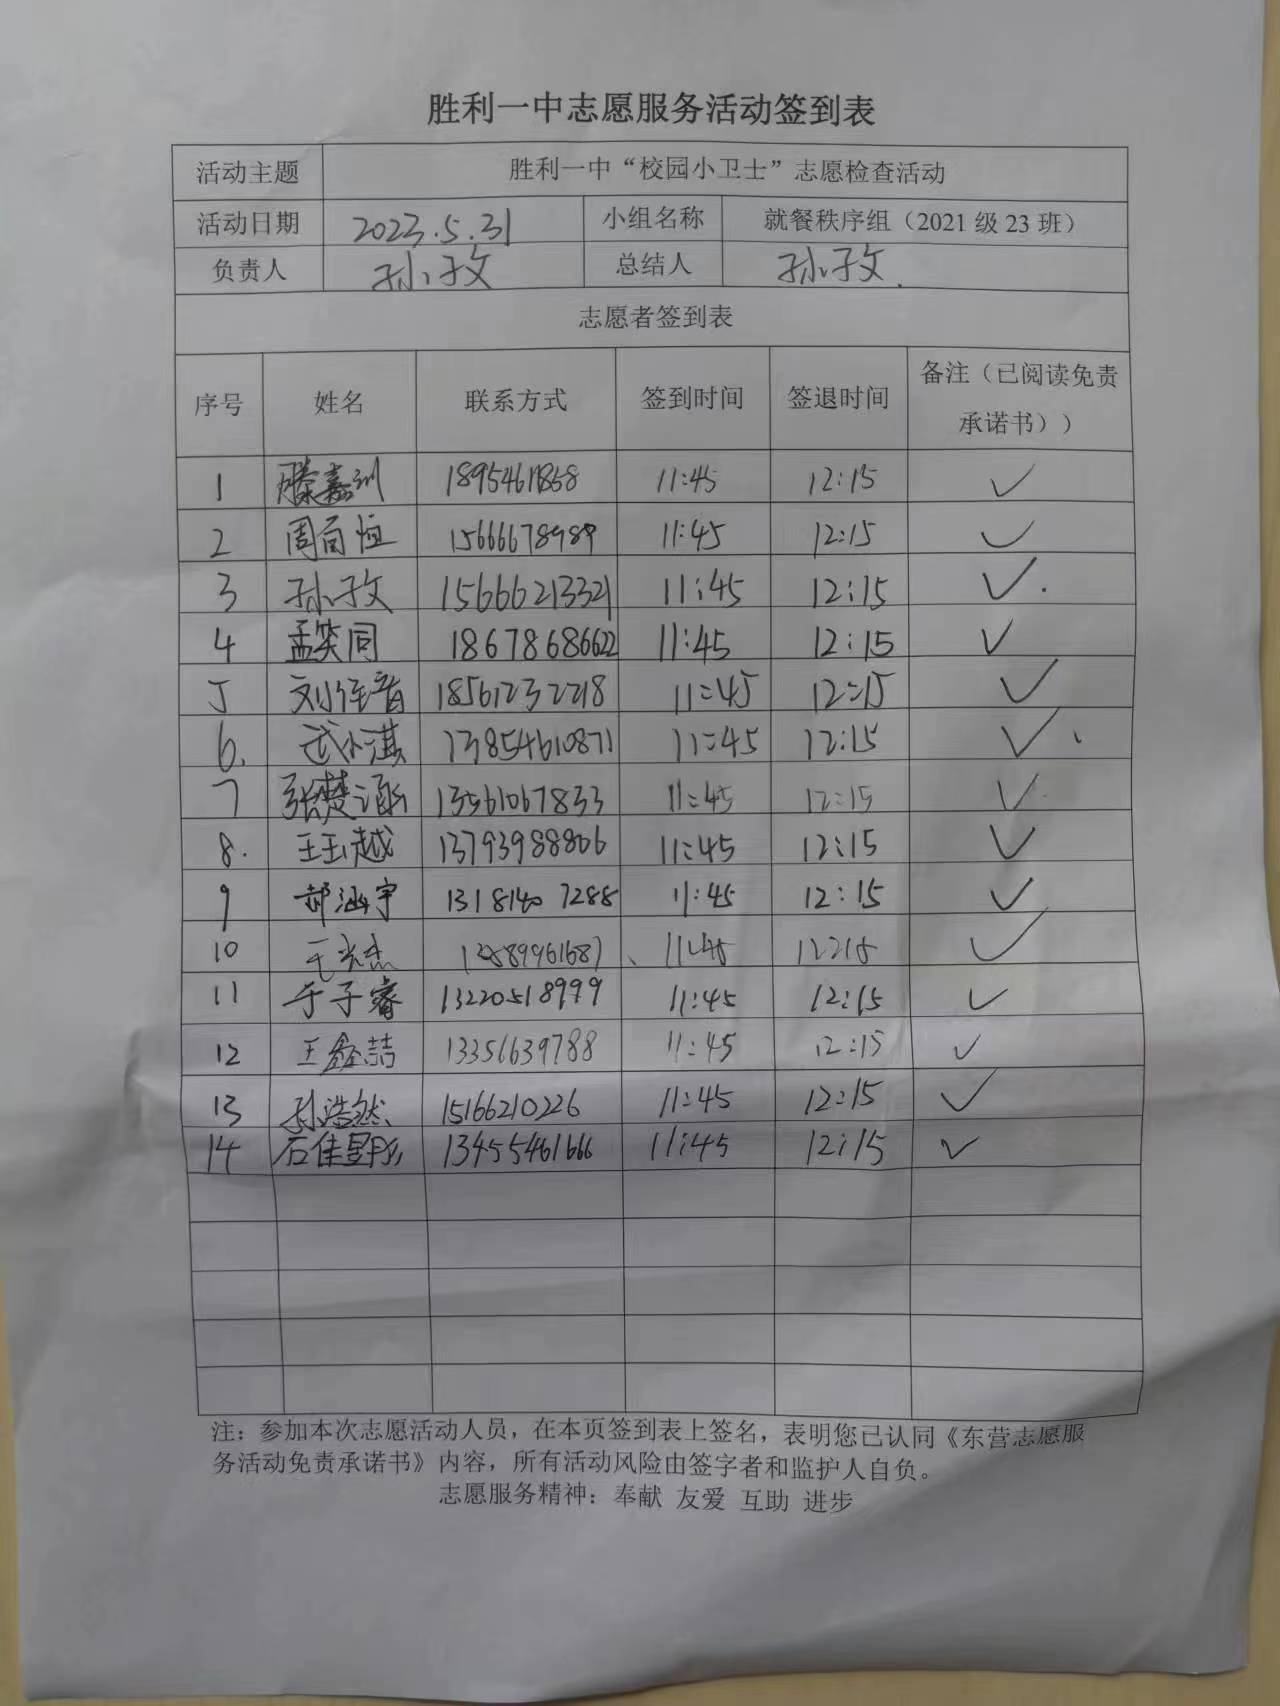 胜利一中志愿服务活动签到表
活动主题 胜利一中“校园小卫士”志愿检查活动
活动日期 2023.5.31 小组名称 就餐秩序组（2021 级 23 班）
负责人 孙孜 总结人 孙孜.
志愿者签到表
序号 姓名 联系方式 签到时间 签退时间 备注（已阅读免责
承诺书））
1 滕嘉 11:45 12:15 ✓
2 周百恒 15666678989 11:45 12:15 ✓
3 孙孜 15666213321 11:45 12:15 ✓.
4 孟笑同 18678686622 11:45 12:15 ✓
5 刘 音 18561232218 11:45 12:15 ✓
6. 武小淇 13854610871 11:45 12:15 ✓、
7 张楚涵 13561067833 11:45 12:15 ✓
8. 王玉越 13793988806 11:45 12:15 ✓
9 郝涵宇 13181407288 11:45 12:15 ✓
10 杰 11:45 12:15 ✓
11 于子睿 13220518999 11:45 12:15 ✓
12 王鑫喆 13356639788 11:45 12:15 ✓
13 孙浩然 15166210226 11:45 12:15 ✓
14 石佳 13455461666 11:45 12:15 ✓
注：参加本次志愿活动人员，在本页签到表上签名，表明您已认同《东营志愿服
务活动免责承诺书》内容，所有活动风险由签字者和监护人自负。
志愿服务精神：奉献 友爱 互助 进步